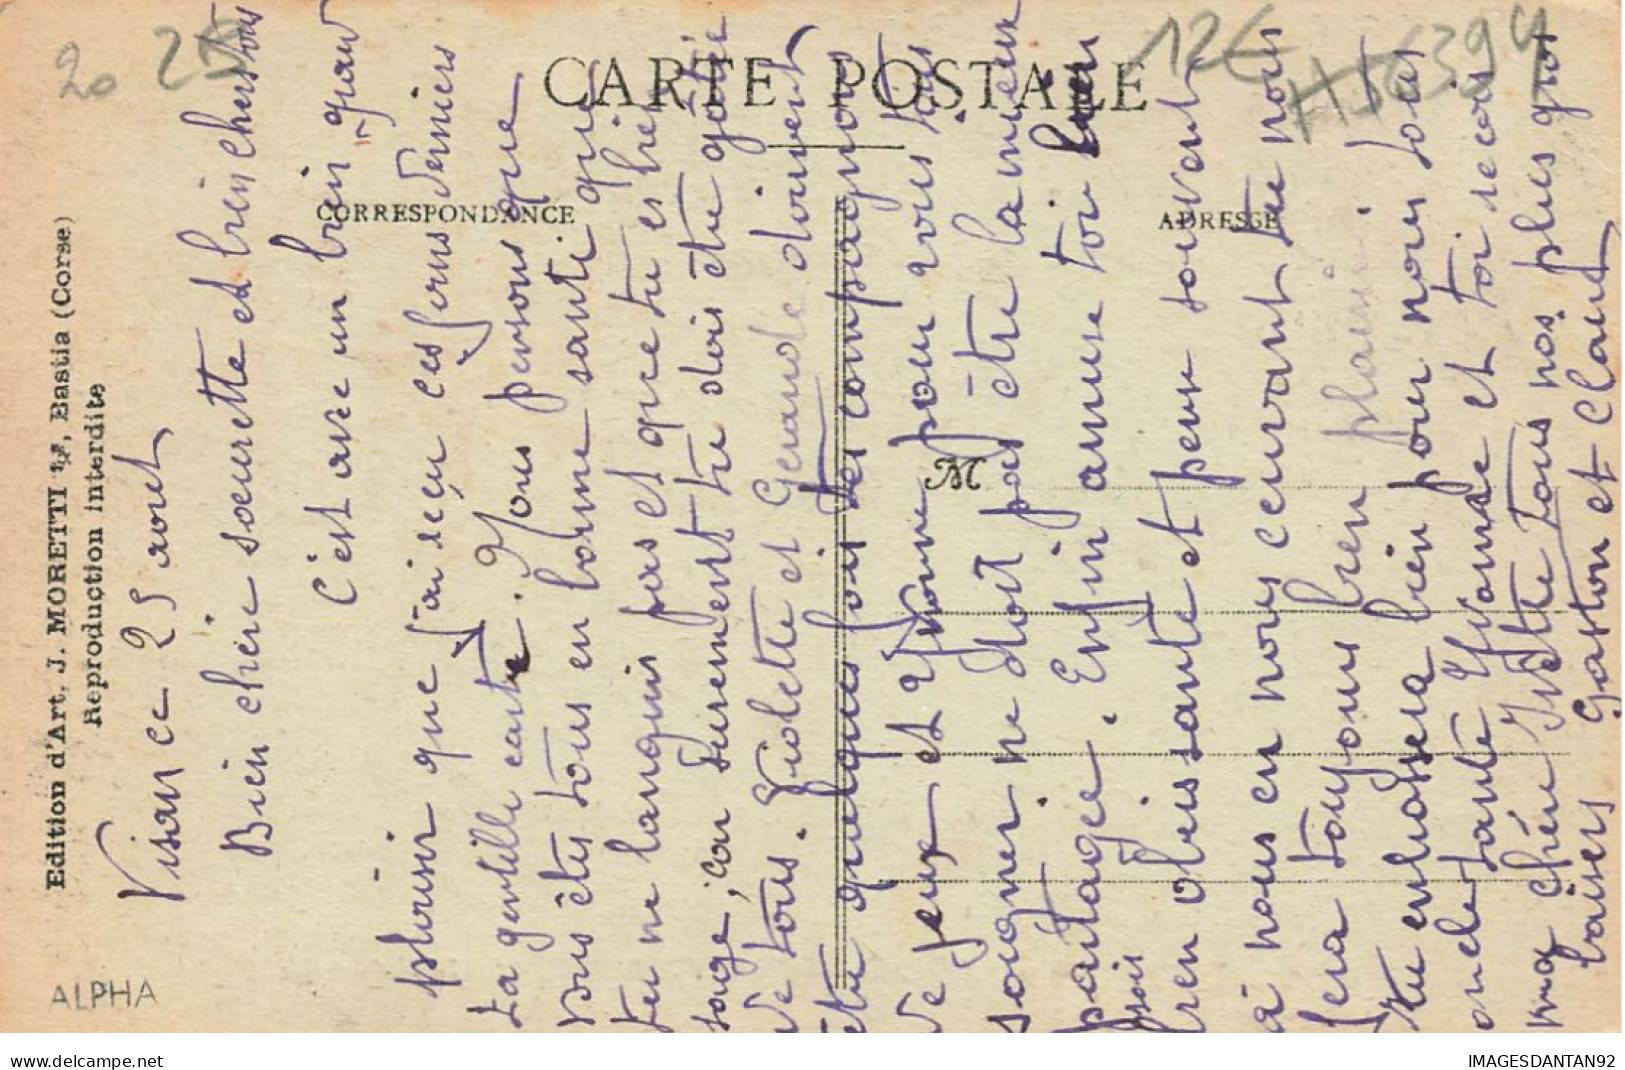 CARTE POSTALE
CORRESPONDANCE
ADRESSE
M
Edition d'Art, J. MORETTI, Bastia (Corse)
Reproduction interdite
20
12€
ALPHA
Visan ce 25 aout
Bien chère soeurette et bien chers tous
C'est avec un bien grand
plaisir que j'ai reçu ces jours derniers
ta gentille carte. Nous pensons que
vous êtes tous en bonne santé que
tu ne languis pas et que tu es bien
sage, car surement tu dois être gâtée
de tous. Violette et Gerande doivent
être quelques fois tes compagnons
de jeux et Yvonne pour vous tous
soigner ne doit pas être la mieux
partagée. Enfin amuse toi bien
sois
bien obeissante et pense souvent
à nous en nous ecrivant tu nous
fera toujours bien plaisir.
Tu enbrassera bien pour nous tous
oncle tante Yvonne et toi recois
ma chérie Titte tous nos plus gros
baisers Gaston et Claud
delcampe.net
IMAGESDANTAN92